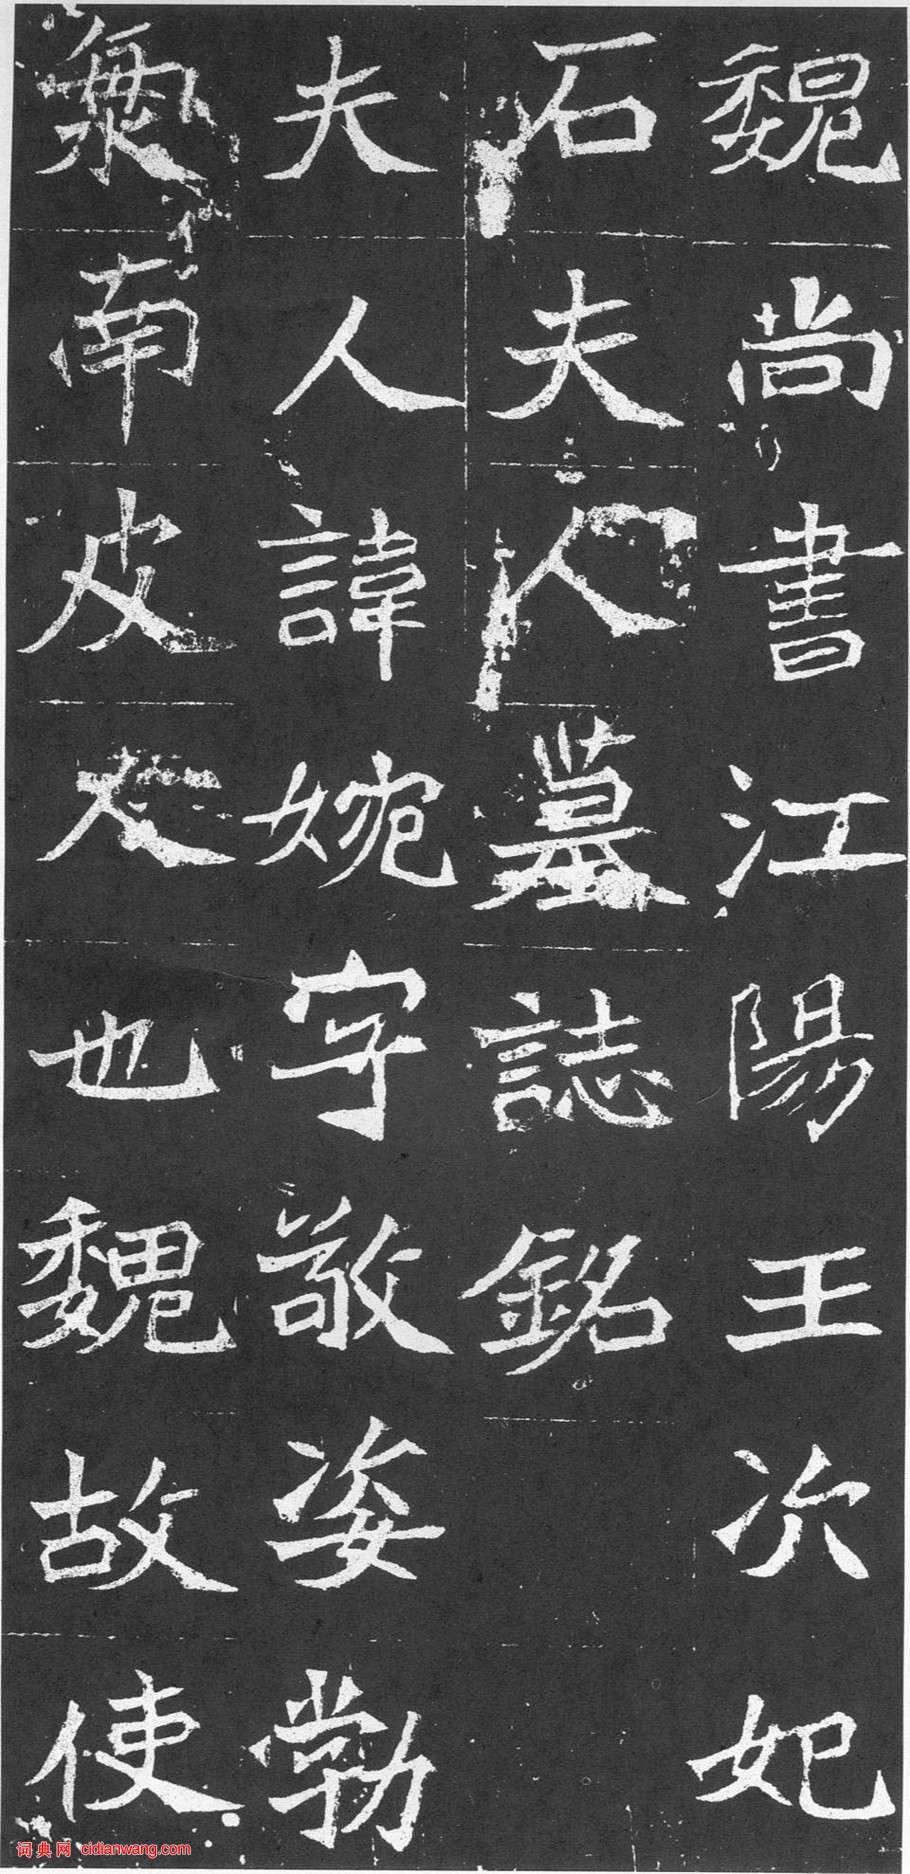 魏尚書江陽王次妃
石夫人墓誌銘
夫人諱婉字敬姿勃
海南皮人也魏故使
词典网 cidianwang.com